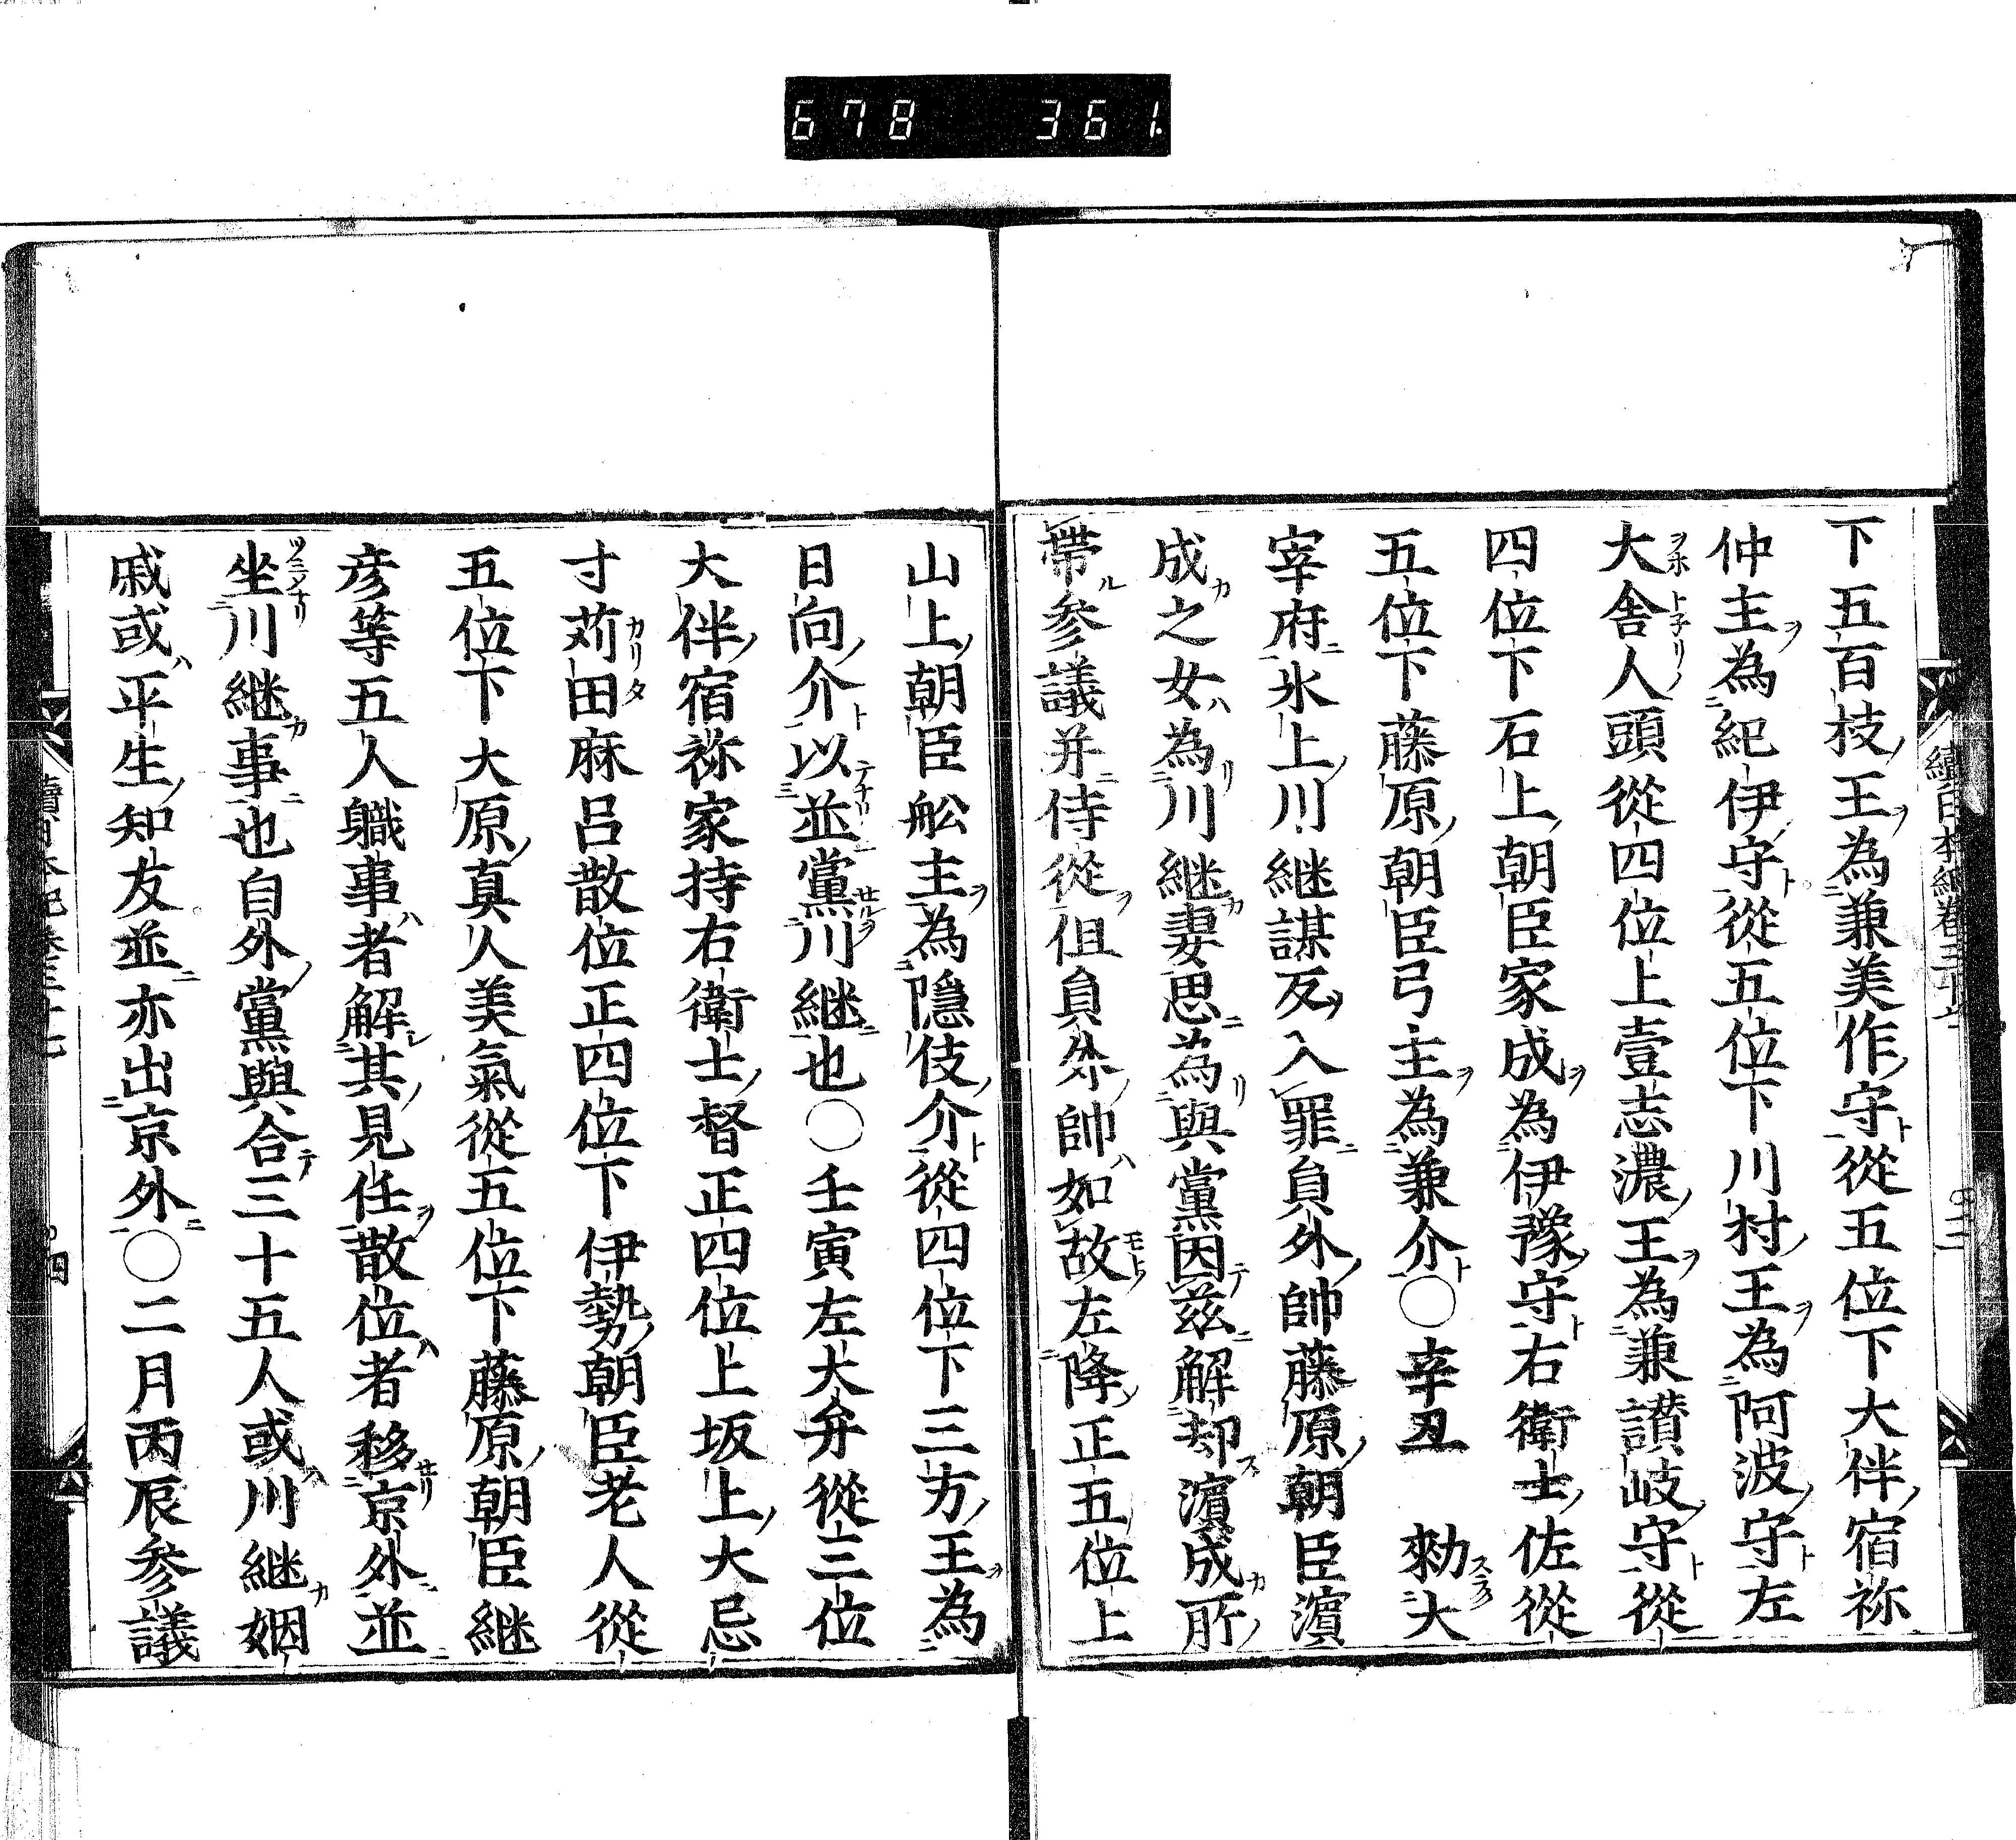 678 361.
下五百枝王為兼美作守從五位下大伴宿祢
仲主為紀伊守從五位下川村王為阿波守左
大舎人頭從四位上壹志濃王為兼讃岐守從
四位下石上朝臣家成為伊豫守右衛士佐從
五位下藤原朝臣弓主為兼介○辛丑 勑大
宰府氷上川継謀反入罪員外帥藤原朝臣濵
成之女為川継妻思為與黨因茲解却濵成所
帶参議并侍從但員外帥如故左降正五位上
山上朝臣舩主為隠伎介從四位下三方王為
日向介以並黨川継也○壬寅左大弁從三位
大伴宿祢家持右衛士督正四位上坂上大忌
寸苅田麻呂散位正四位下伊勢朝臣老人從
五位下大原真人美氣從五位下藤原朝臣継
彦等五人職事者解其見任散位者移京外並
坐川継事也自外黨與合三十五人或川継姻
戚或平生知友並亦出京外○二月丙辰参議
四